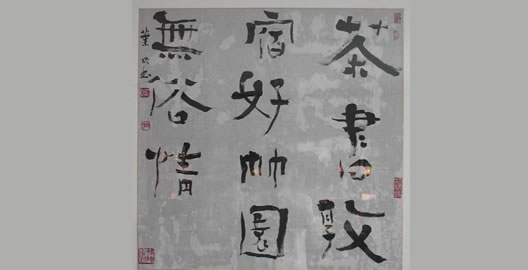 茶書敦
宿好林園
無俗情
葉